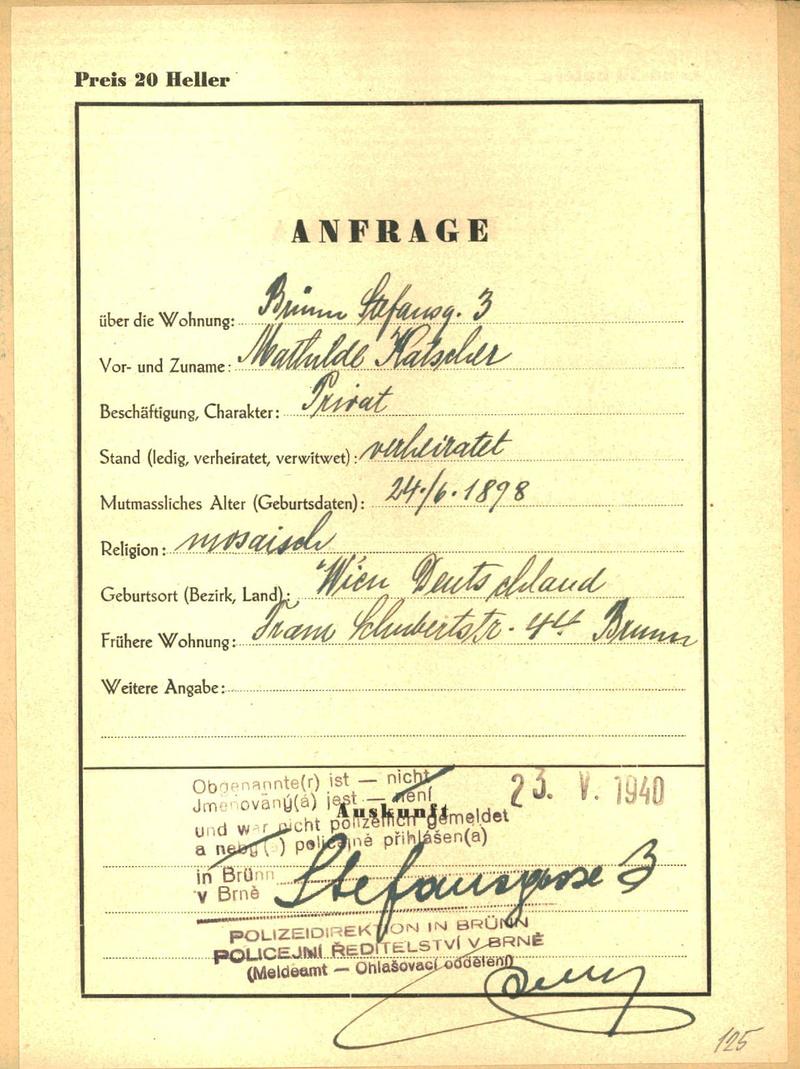 Preis 20 Heller
ANFRAGE
über die Wohnung: Brünn Stefansg. 3
Vor- und Zuname: Mathilde Katscher
Beschäftigung, Charakter: Privat
Stand (ledig, verheiratet, verwitwet): verheiratet
Mutmassliches Alter (Geburtsdaten): 24./6. 1898
Religion: mosaisch
Geburtsort (Bezirk, Land): Wien Deutschland
Frühere Wohnung: Franz Schubertstr. Brünn
Weitere Angabe:
Obgenannte(r) ist — nicht
23. V. 1940
Jmenovaný(á) jest — není
Auskunft
und war nicht polizeilich gemeldet
a neby( ) policejně přihlášen(a)
in Brünn
v Brně
Stefansgasse 3
POLIZEIDIREKTION IN BRÜNN
POLICEJNÍ ŘEDITELSTVÍ V BRNĚ
(Meldeamt — Ohlašovací oddělení)
125